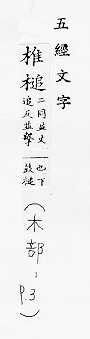 五經文字
椎槌二同並丈追反並擊也下鼓槌
(木部:p.3)